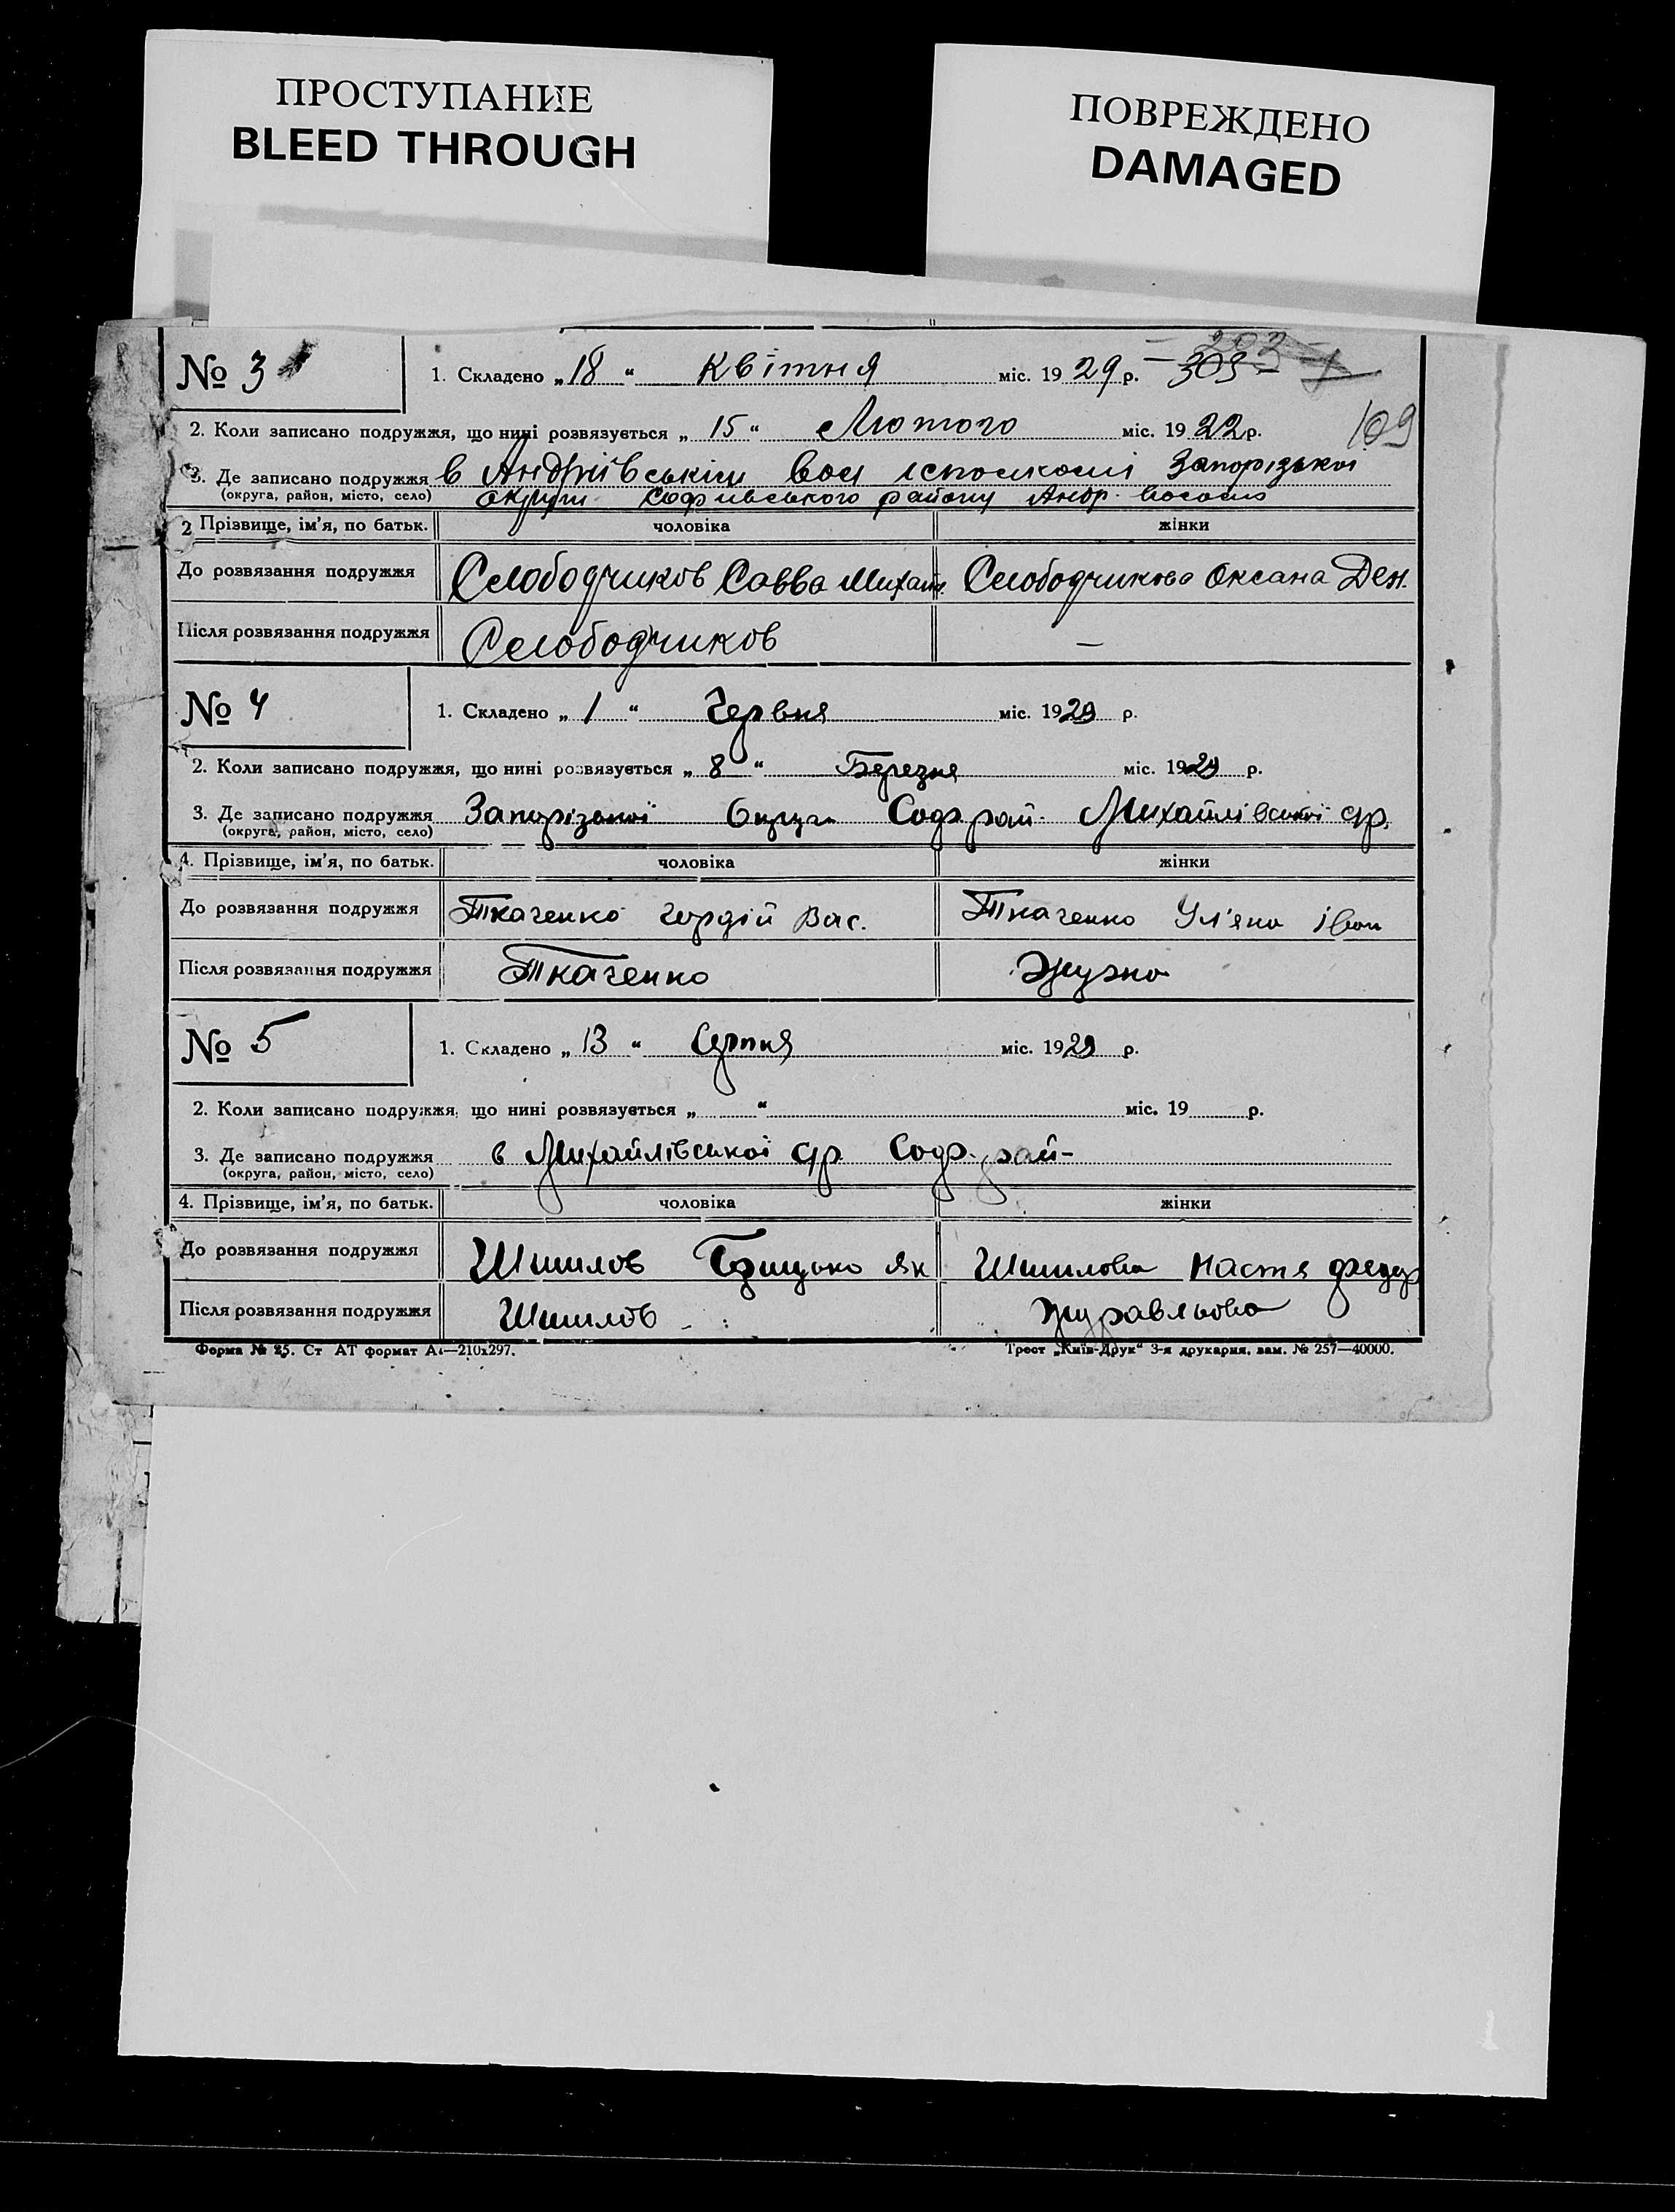 ПРОСТУПАНИЕ
BLEED THROUGH
ПОВРЕЖДЕНО
DAMAGED
№ 3
1. Складено „ 18 “ Квітня міс. 19 29 р. – 303 –
109
2. Коли записано подружжя, що нині розвязується „ 15 “ Лютого міс. 19 22 р.
3. Де записано подружжя в Андріївськім вол Запорізької
(округа, район, місто, село) округи Софиівського району Андр.
2 Прізвище, ім’я, по батьк. чоловіка жінки
До розвязання подружжя Слободчиков Савва Михайл. Слободчикова Оксана Ден.
Після розвязання подружжя Слободчиков –
№ 4
1. Складено „ 1 “ Червня міс. 19 29 р.
2. Коли записано подружжя, що нині розвязується „ 8 “ Березня міс. 19 29 р.
3. Де записано подружжя Запорізької Округи Соф. рай. Михайлівської с/р.
(округа, район, місто, село)
4. Прізвище, ім’я, по батьк. чоловіка жінки
До розвязання подружжя Ткаченко Гордій Вас. Ткаченко Ул'яна Іван
Після розвязання подружжя Ткаченко
№ 5
1. Складено „ 13 “ Серпня міс. 19 29 р.
2. Коли записано подружжя, що нині розвязується „ “ міс. 19 р.
3. Де записано подружжя в Михайлівської с/р. Соф. рай-
(округа, район, місто, село)
4. Прізвище, ім’я, по батьк. чоловіка жінки
До розвязання подружжя Шишлов Грицько Як Шишлова Настя Федор
Після розвязання подружжя Шишлов Журавльова
Форма № 25. Ст АТ формат А4—210х297.
Трест „Київ-Друк“ 3-я друкарня, зам. № 257—40000.